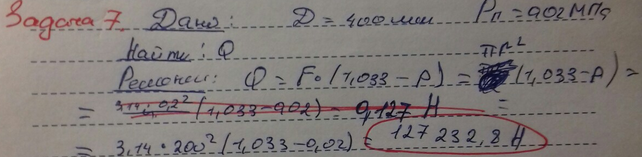 Задача 7. Дано: D = 400мм Pп = 902МПа
Найти: Q
Решение: Q = F₀(1,033 – p) = πr² (1,033 – p) =
= 3,14 · 0,2² (1,033 – 0,02) = 0,127 Н =
= 3,14 · 200² (1,033 – 0,02) = 127 232,8 Н